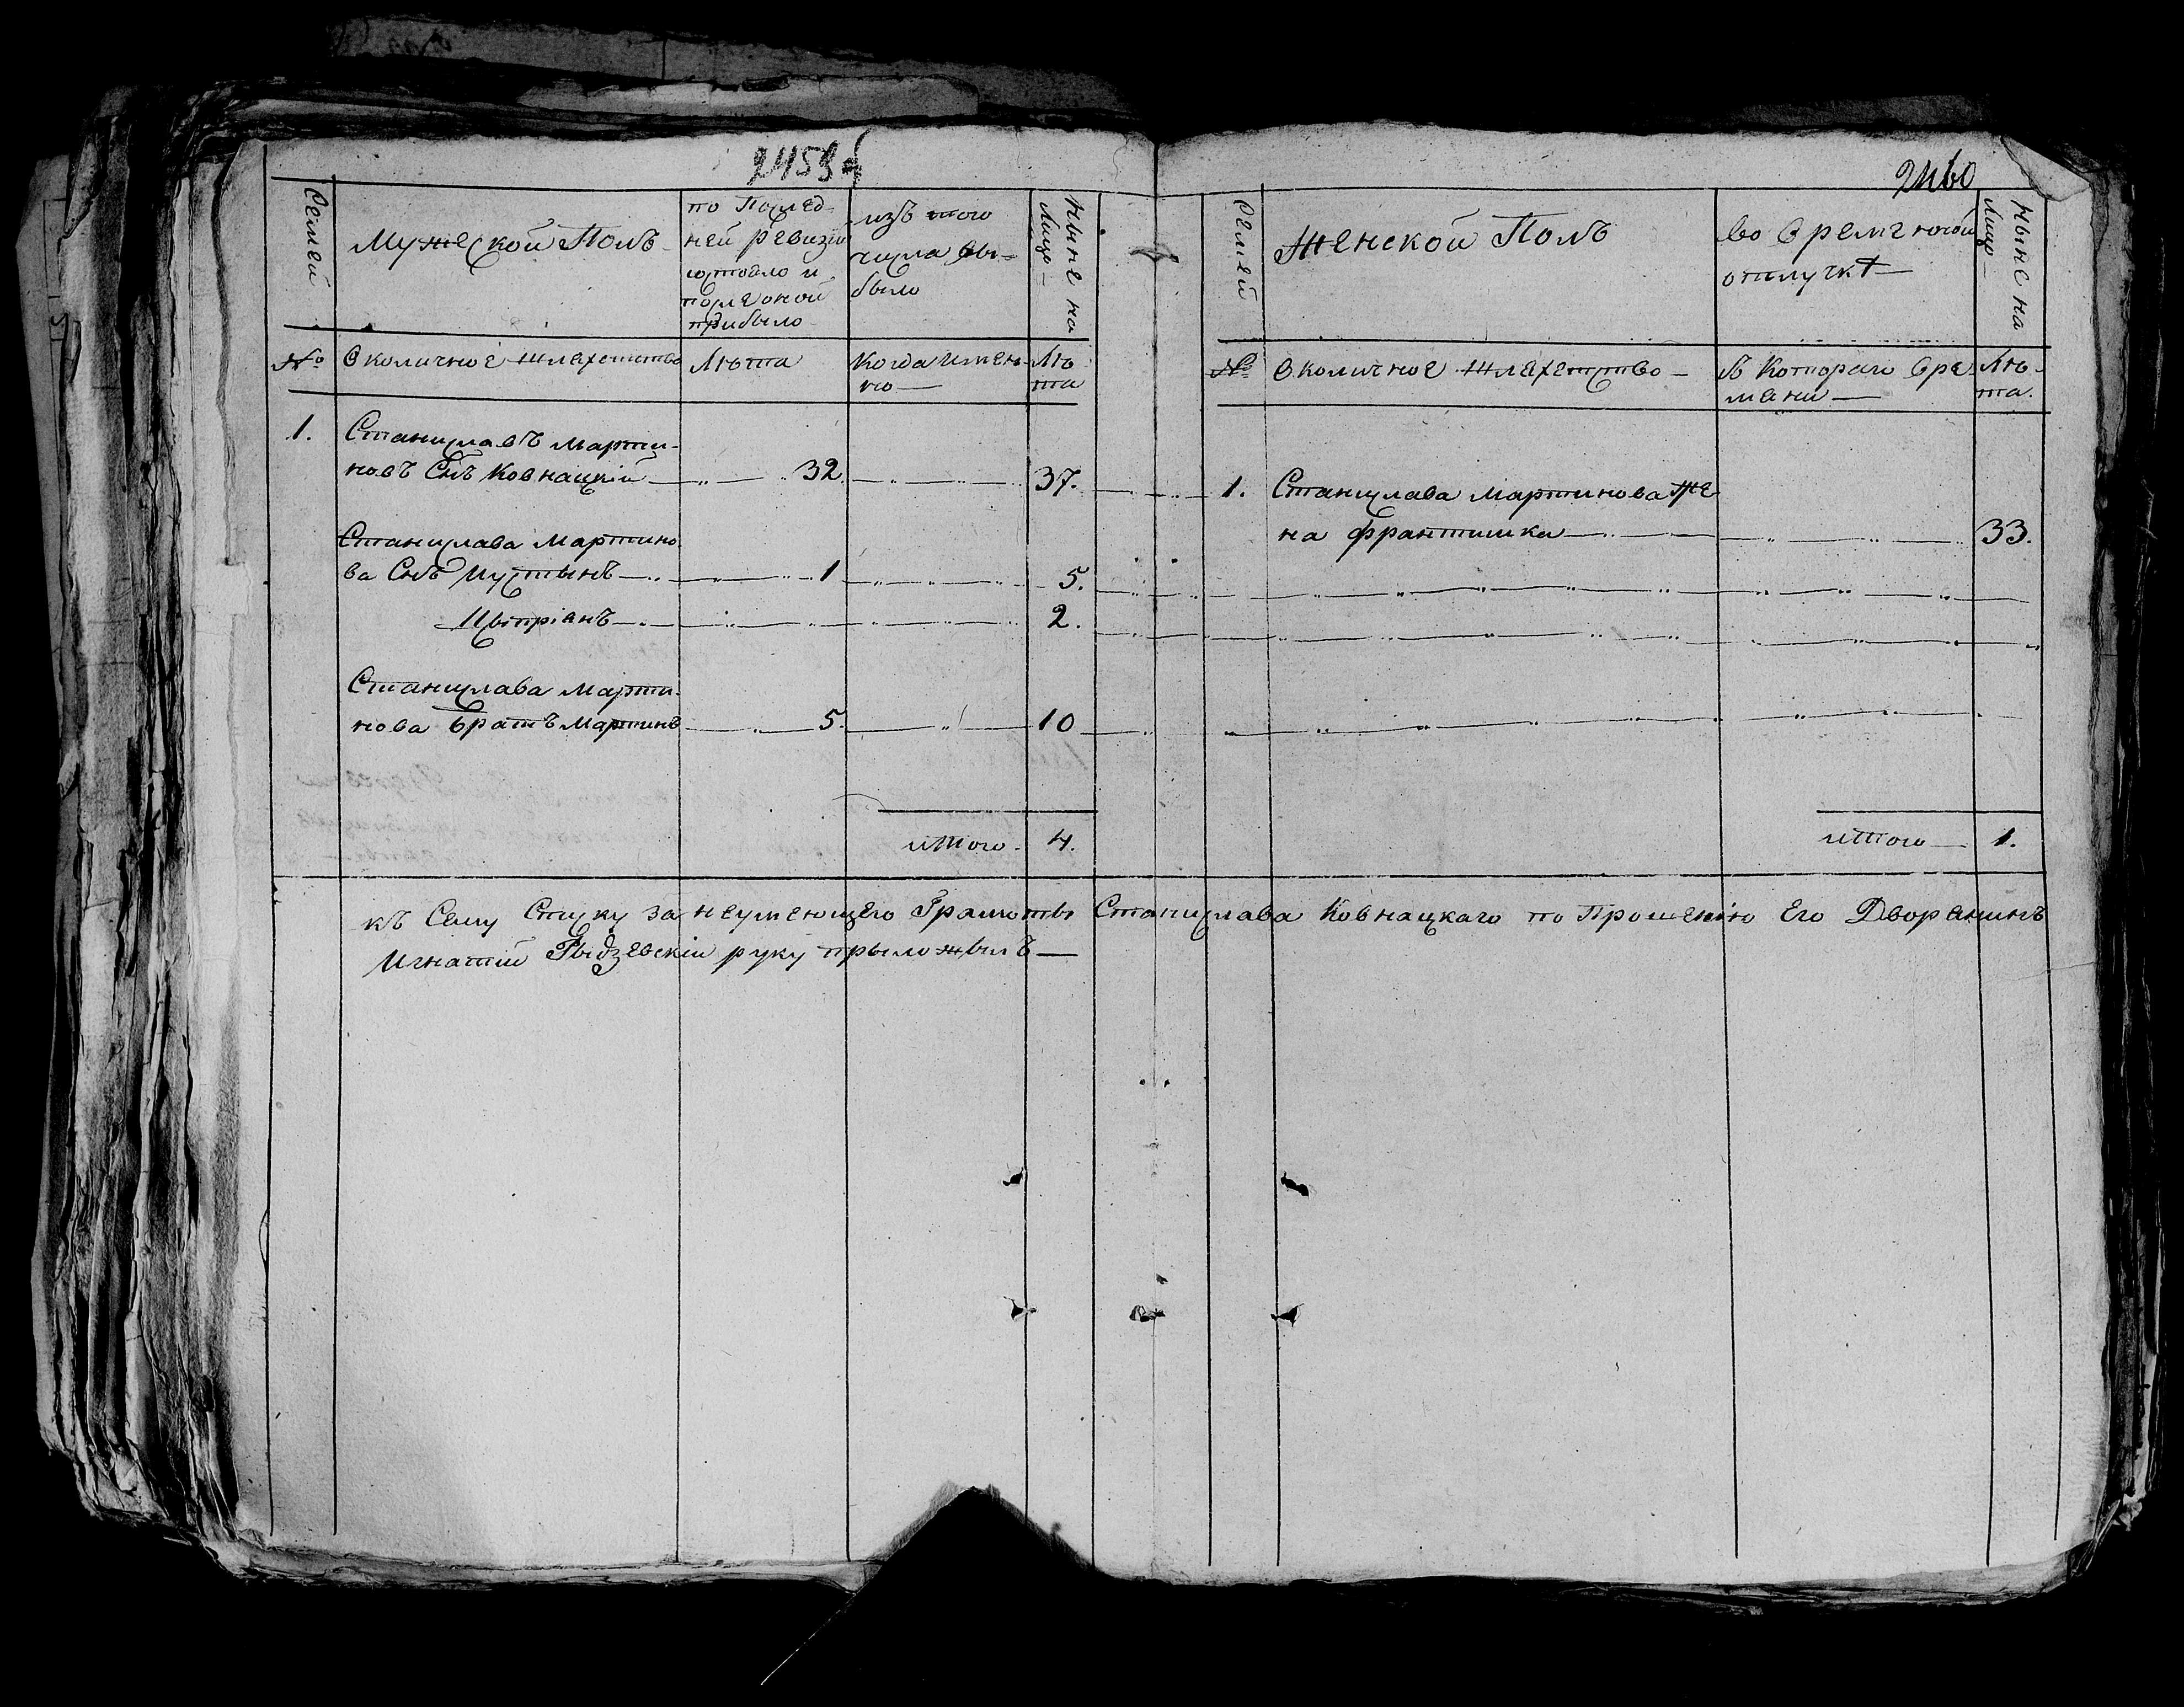 2459об
Семей
Мужеской Полъ
по послед-
ней ревизіи
состояло и
после оной
прибыло
изъ того
числа вы-
было
ныне на
лицо
№
Околичное шляхетство
Лѣта
Когда имен-
но
Лѣ
та
1.
Станиславъ Марти-
новъ Снъ Ковнацкій
32
37.
Станислава Мартино
ва Снъ Иустынъ
1
5.
Цыпріанъ
2.
Станислава Марти-
нова братъ Мартинъ
5.
10
итого
4.
2460
Семей
Женской Полъ
во временной
отлучкѣ
ныне на
лицо
№
Околичное шляхетство
съ Котораго вре
мени
Лѣ-
та.
1.
Станислава Мартинова же
на франтишка
33.
итого
1.
къ Сему Списку за неумеющего Грамоты Станислава Ковнацкаго по Прошенію Его Дворянинъ
Игнатій Рыдзевскій руку прыложылъ